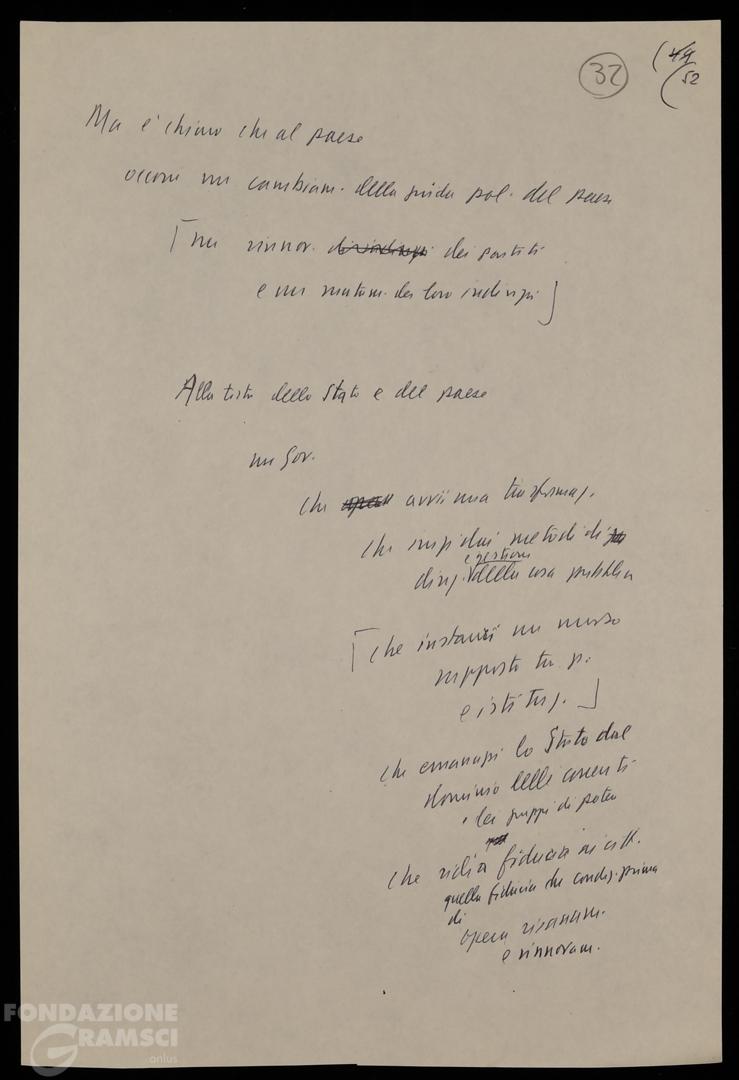 32
(49
(52
Ma è chiaro che al paese
occorre un cambiam. della guida pol. del paese
[un rinnov. dei partiti
e un mutam. dei loro indirizzi]
Alla testa dello Stato e del paese
un Gov.
che avvii una trasformaz.
che innovi i metodi di
direz. e gestione della cosa pubblica
[che instauri un nuovo
rapporto tra p.
e istituz.]
che emancipi lo Stato dal
dominio delle correnti
e dei gruppi di potere
che ridia fiducia ai citt.
quella fiducia che condiz. prima
di
opera risanam.
e rinnovam.
FONDAZIONE
GRAMSCI
onlus